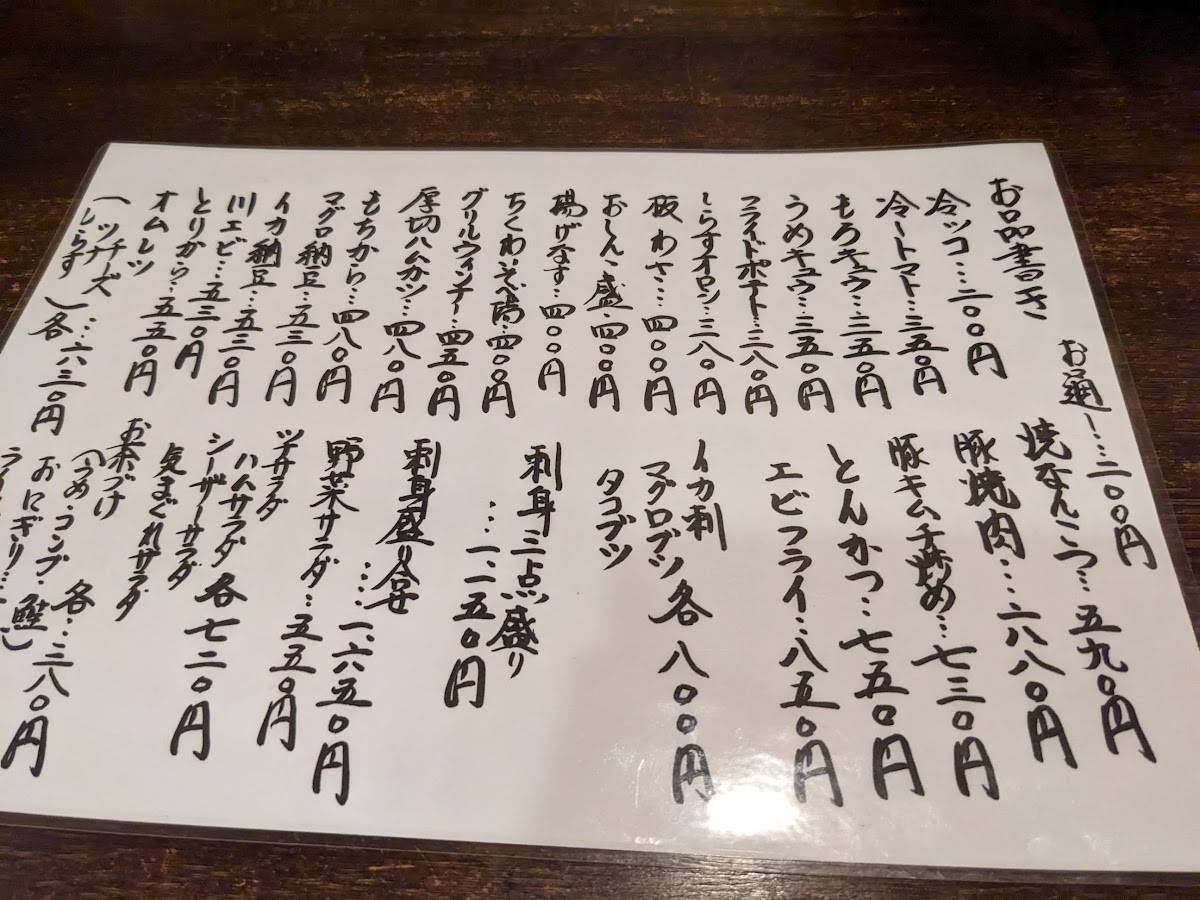 お品書き
お通し…二〇〇円
冷ッコ…二〇〇円
冷トマト…三五〇円
もろキュウ…三五〇円
うめキュウ…三五〇円
フライドポテト…三八〇円
しらすオロシ…三八〇円
板わさ…四〇〇円
おしんこ盛…四〇〇円
揚げなす…四〇〇円
ちくわいそべ揚…四〇〇円
グリルウィンナー…四五〇円
厚切ハムカツ…四八〇円
もちから…四八〇円
マグロ納豆…五三〇円
イカ納豆…五三〇円
川エビ…五三〇円
とりから…五五〇円
オムレツ
（ツナ・チーズ
しらす）各…六三〇円
焼なんこつ…五九〇円
豚焼肉…六八〇円
豚キムチ炒め…七三〇円
とんかつ…七五〇円
エビフライ…八五〇円
イカ刺
マグロブツ 各八〇〇円
タコブツ
刺身三点盛り
…一、一五〇円
刺身盛り合せ
…一、六五〇円
野菜サラダ…五五〇円
ツナサラダ
ハムサラダ
シーザーサラダ 各七二〇円
気まぐれサラダ
お茶づけ
（うめ・コンブ・鮭）
各…三八〇円
おにぎり…